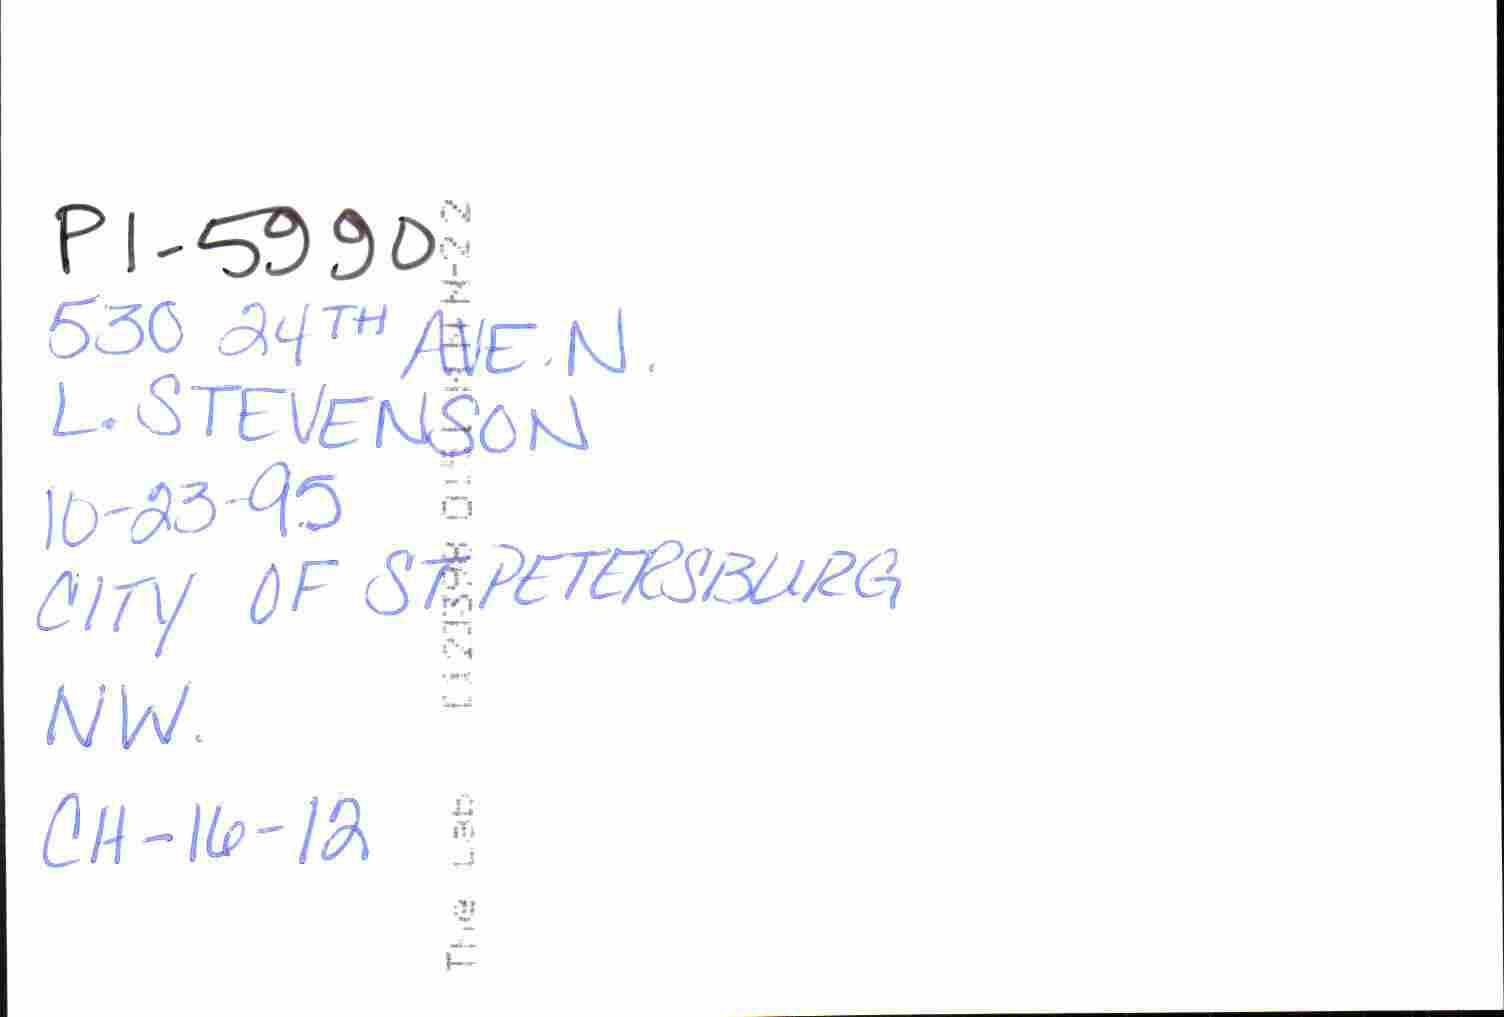 PI-5990
530 24TH AVE. N.
L. STEVENSON
10-23-95
CITY OF ST. PETERSBURG
NW.
CH-16-12
The Lab